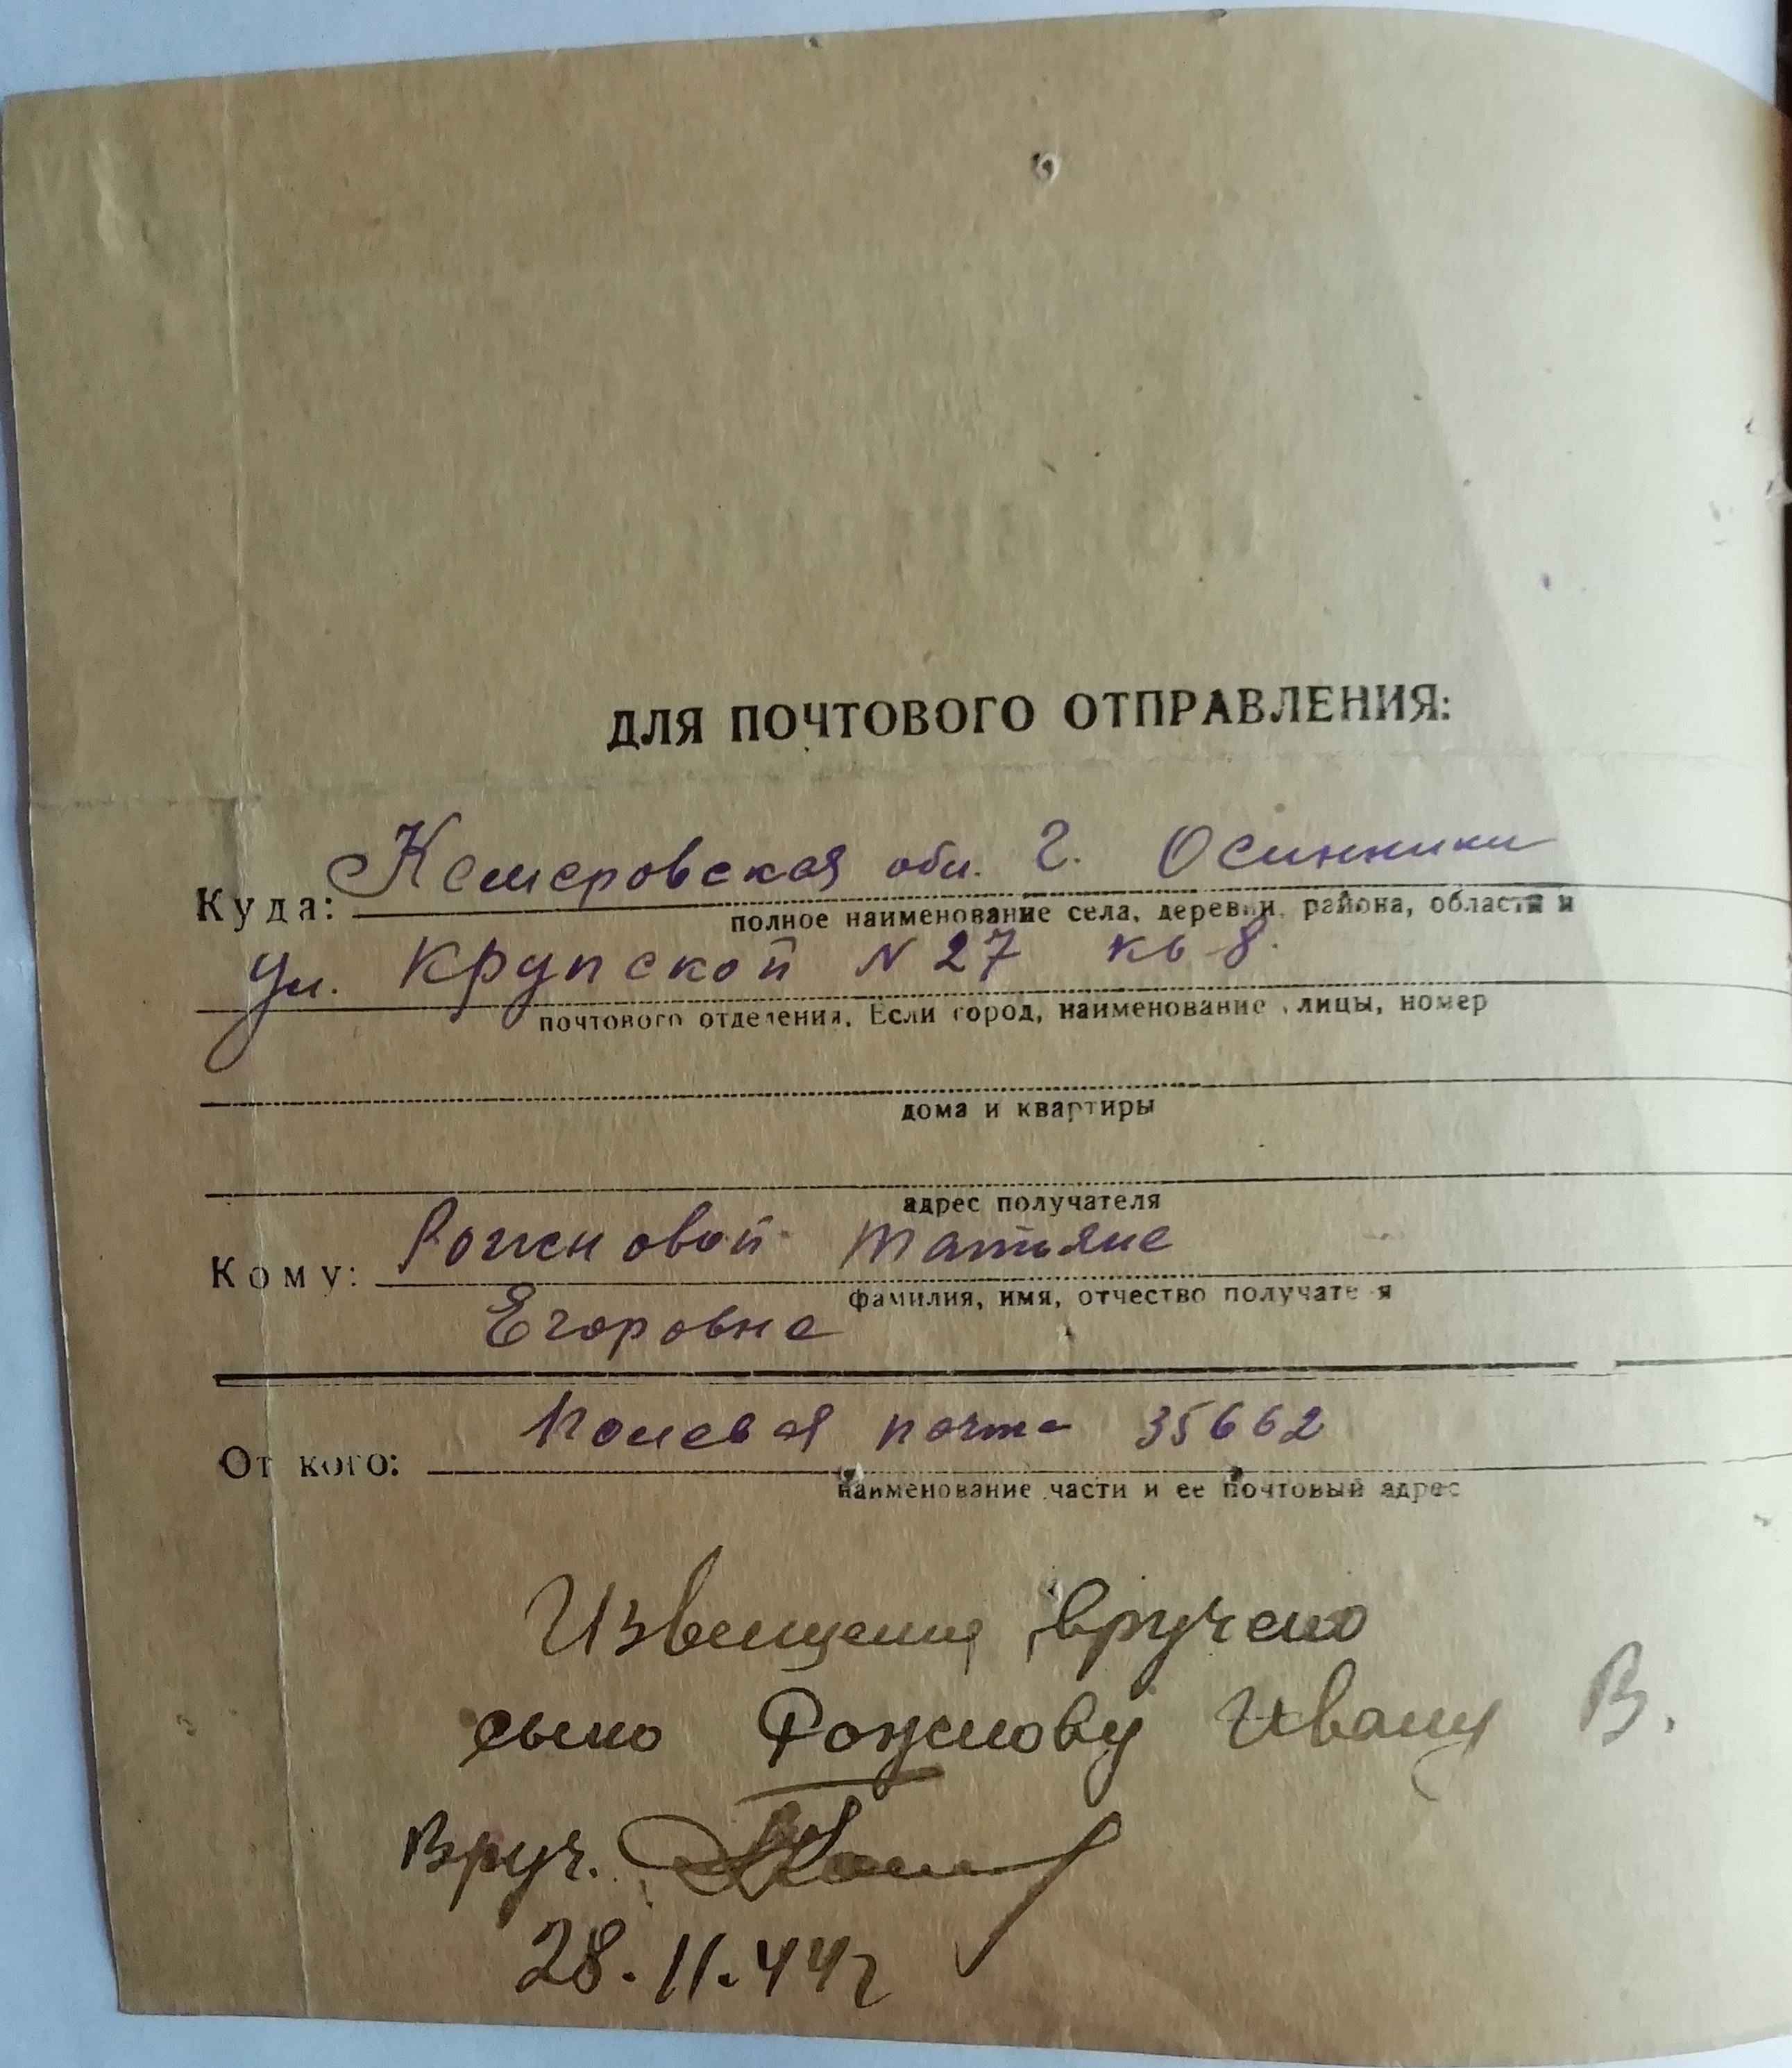 ДЛЯ ПОЧТОВОГО ОТПРАВЛЕНИЯ:
Куда: Кемеровская обл. г. Осинники
полное наименование села, деревни, района, области и
ул. Крупской N 27 кв 8.
почтового отделения. Если город, наименование улицы, номер
дома и квартиры
адрес получателя
Кому: Рожновой Татьяне
фамилия, имя, отчество получателя
Егоровне
От кого: Полевая почта 35662
наименование части и ее почтовый адрес
Извещения вручено
сыно Рожнову Ивану В.
Вруч.
28.11.44г